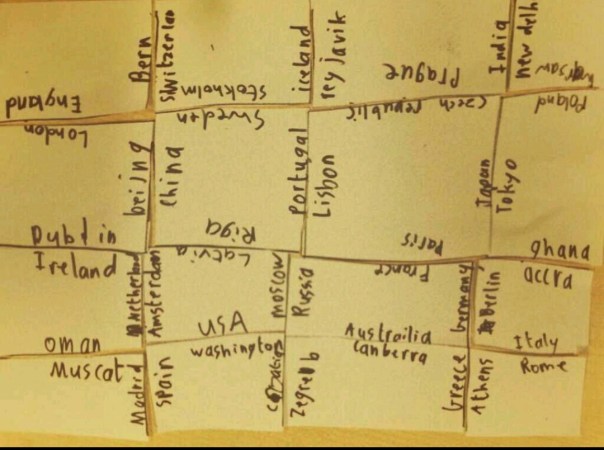 Bern
Switzerlan
iceland
reyjavik
India
new delh
England
Stokholm
Prague
warsaw
London
Sweden
czech republic
Poland
beijng
china
Portugal
Lisbon
Japan
Tokyo
Dublin
Riga
Paris
ghana
Ireland
Latvia
France
accra
Netherland
Amsterdam
moscow
Russia
Germany
Berlin
oman
USA
Austrailia
Italy
Muscat
washington
canberra
Rome
Madrid
spain
Zegreb
Greece
Athens